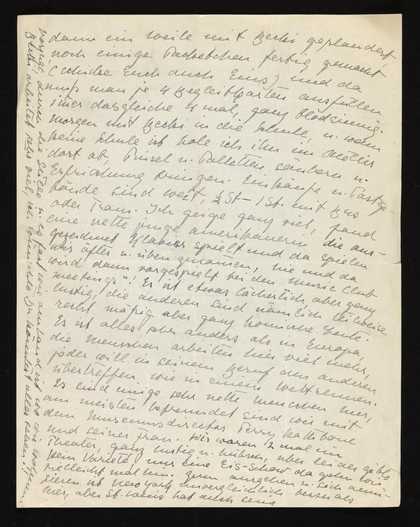 dann ein weile mit Becki geplaudert
noch einige Packetchen fertig gemacht
(schicke Euch auch Eins) und da
muss man je 4 Begleitkarten ausfüllen
immer dasgleiche 4 mal, ganz blödsinnig.
morgen mit Becki in die Schule, u. wenn
keine Schule ist hole ich ihn im Atelier
dort ab, Pinsel u. Palletten säubern u.
Erfrischung bringen. Einkäufe u. Postge-
bäude sind weit, ½ St - 1 St. mit Bus
oder Tram. Ich geige ganz viel, fand
eine nette junge amerikanerin die aus-
gezeichnet Klavier spielt und da spielen
wir öfters u. üben zusammen, hie und da
wird dann vorgespielt bei den music Club
meetings"! Es ist etwas lächerlich aber ganz
lustig, die anderen sind nämlich
recht mäßig aber ganz komische Leute.
Es ist alles aber anders als in Europa,
die menschen arbeiten hier viel mehr,
jeder will in seinem Beruf den anderen
übertreffen wie in einem Wettrennen.
Es sind einige sehr nette menschen hier,
am meisten befreundet sind wir mit
dem museumsdirector Perry Rathbone
und seiner frau. Wir waren 2 mal im
Theater, ganz lustig u. hübsch, aber leider gibts
kein Varieté nur eine Eis-Schow da gehn wir
vielleicht mal hin. zum ausgehen u. sich amü-
sieren ist newyork unvergleichlich besser als
hier, aber St. Louis hat auch seine
Becki arbeitet sehr viel, ich